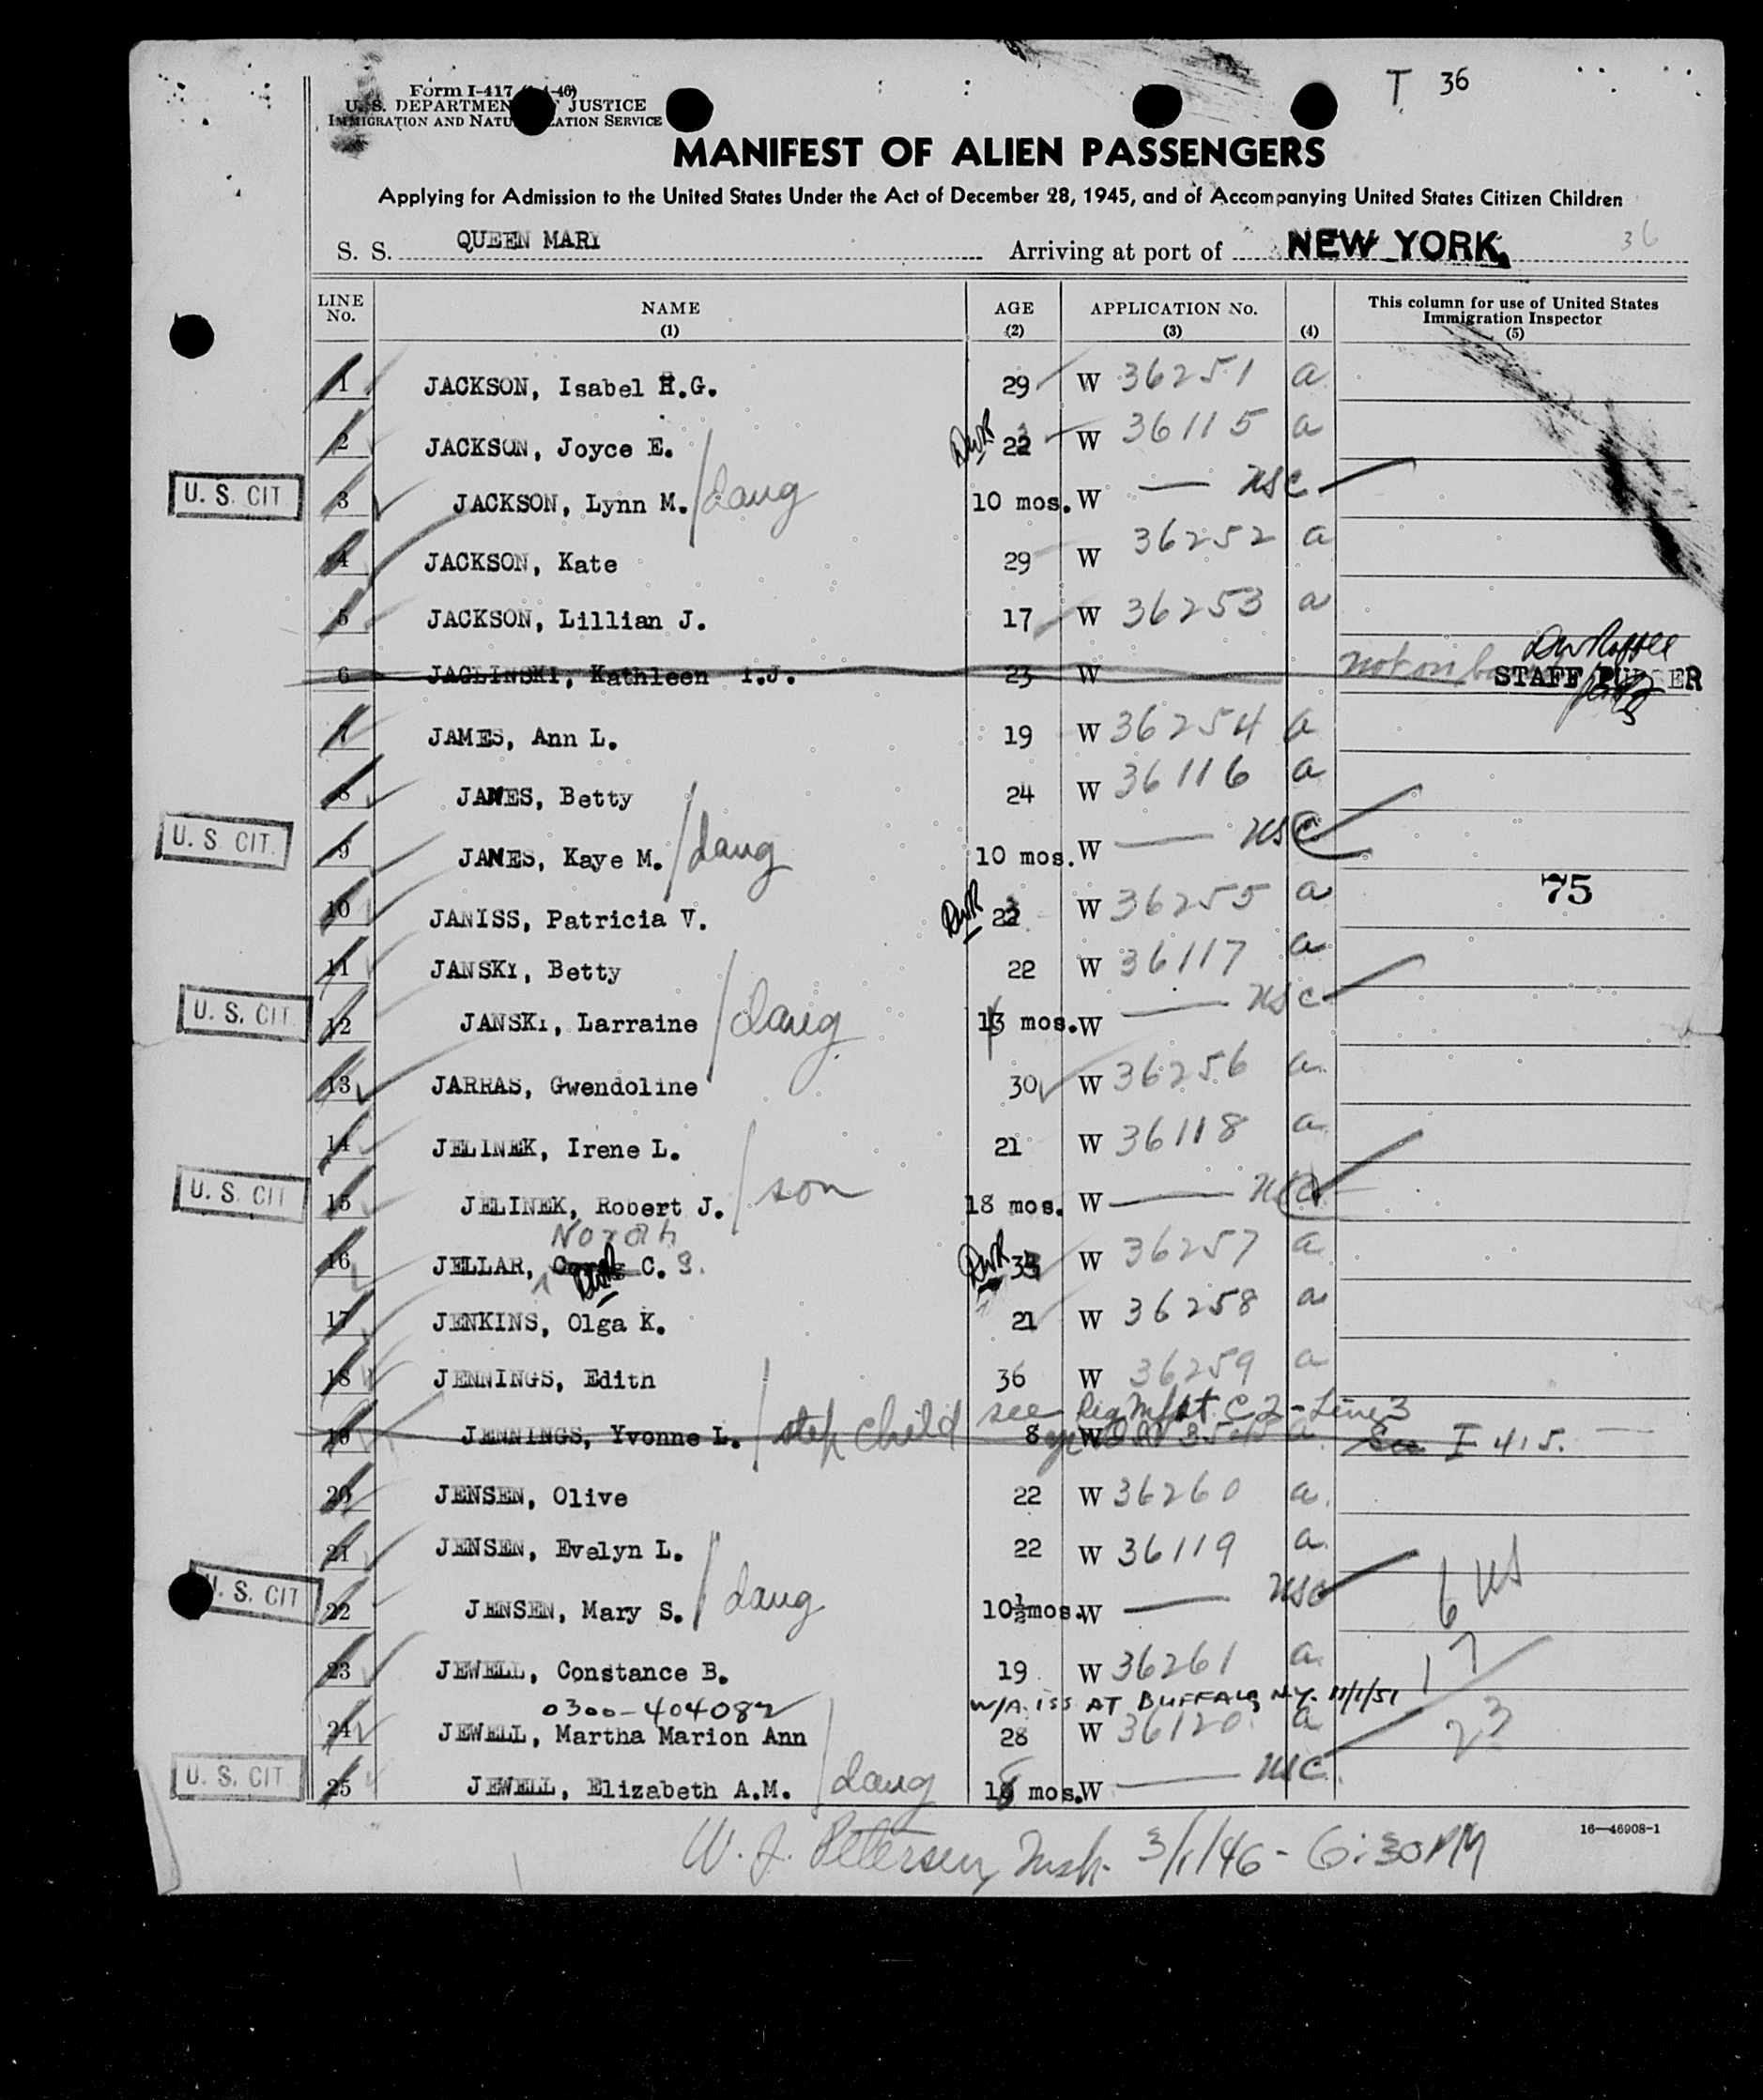 T 36
Form I-417
U. S. DEPARTMENT OF JUSTICE
IMMIGRATION AND NATURALIZATION SERVICE
MANIFEST OF ALIEN PASSENGERS
Applying for Admission to the United States Under the Act of December 28, 1945, and of Accompanying United States Citizen Children
S. S. QUEEN MARY Arriving at port of NEW YORK, 36
LINE No. NAME (1) AGE (2) APPLICATION No. (3) (4) This column for use of United States Immigration Inspector (5)
1 JACKSON, Isabel H.G. 29 W 36251 a
2 JACKSON, Joyce E. DWR W 36115 a
U. S. CIT 3 JACKSON, Lynn M. / daug 10 mos. W — USC
4 JACKSON, Kate 29 W 36252 a
5 JACKSON, Lillian J. 17 W 36253 a
6 JAGLINSKI, Kathleen I.J. 23 W not on STAFF PURSER
7 JAMES, Ann L. 19 W 36254 a
8 JAMES, Betty 24 W 36116 a
U. S. CIT. 9 JAMES, Kaye M. / daug 10 mos. W — USC
75
10 JANISS, Patricia V. DWR W 36255 a
11 JANSKY, Betty 22 W 36117 a
U. S. CIT. 12 JANSKY, Larraine / daug mos. W — USC
13 JARRAS, Gwendoline 30 W 36256 a
14 JELINEK, Irene L. 21 W 36118 a
U. S. CIT 15 JELINEK, Robert J. / son 18 mos. W — USC
Norah
16 JELLAR, C. S. DWR W 36257 a
17 JENKINS, Olga K. 21 W 36258 a
18 JENNINGS, Edith 36 W 36259 a
see Reg Mfst. C2 - Line 3
19 JENNINGS, Yvonne L. / step child 8 W a See I 415.
20 JENSEN, Olive 22 W 36260 a
21 JENSEN, Evelyn L. 22 W 36119 a
U. S. CIT 22 JENSEN, Mary S. / daug 10½mos. W — USC
6 US
23 JEWELL, Constance B. 19 W 36261 a
17
0300-404082 W/A ISS AT BUFFALO, N.Y. 11/1/51
24 JEWELL, Martha Marion Ann 28 W 36120 a
23
U. S. CIT. 25 JEWELL, Elizabeth A.M. / daug mos. W — USC
16—46908-1
W. J. Petersen, Insp. 3/1/46 - 6:30 PM